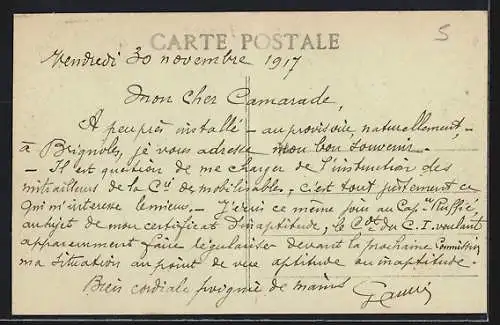 CARTE POSTALE
5
Vendredi 30 novembre 1917
Mon cher Camarade,
À peu près installé - au provisoire, naturellement, -
à Brignoles, je vous adresse mon bon souvenir -
- Il est question de me charger de l'instruction des
mitrailleurs de la Cie des mobilisables, c'est tout justement ce
qui m'intéresse le mieux. - J'écris ce même jour au Capne Ruffié,
au sujet de mon certificat d'inaptitude, le Cdt du C.I. voulant
apparemment faire régulariser devant la prochaine Commission
ma situation au point de vue aptitude ou inaptitude.
Bien cordiale poignée de mains